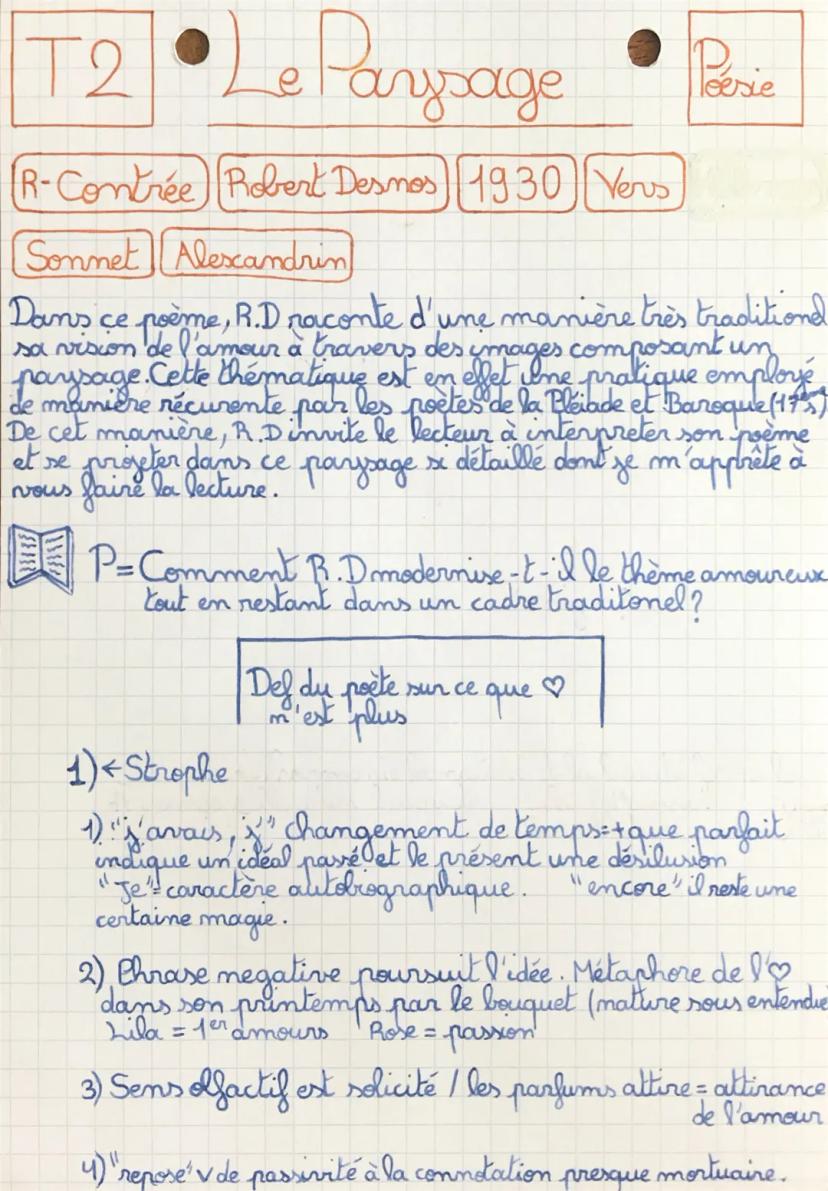 T2
Le Paysage
Poésie
R-Contrée
Robert Desnos
1930
Vers
Sonnet
Alexcandrin
Dans ce poème, R.D raconte d'une manière très traditionel
sa vision de l'amour à travers des images composant un
paysage. Cette thématique est en effet une pratique employé
de manière récurente par les poètes de la Pléiade et Baroque (17ème s)
De cet manière, R.D invite le lecteur à interpreter son poème
et se projeter dans ce paysage si détaillé dont je m'apprête à
vous faire la lecture.
P= Comment R.D modernise-t-il le thème amoureux
tout en restant dans un cadre traditonel ?
Def du poète sur ce que ♡
n'est plus
1) ← Strophe
1) "j'avais, j'" changement de temps=+que parfait
indique un idéal passé et le présent une désilusion
"Je"= caractère autobiographique. "encore" il reste une
certaine magie.
2) Phrase negative poursuit l'idée. Métaphore de l'♡
dans son printemps par le bouquet (nature sous entendue
Lila = 1er amours Rose = passion
3) Sens olfactif est solicité / les parfums attire = attirance
de l'amour
4) "repose" v de passivité à la connotation presque mortuaire.